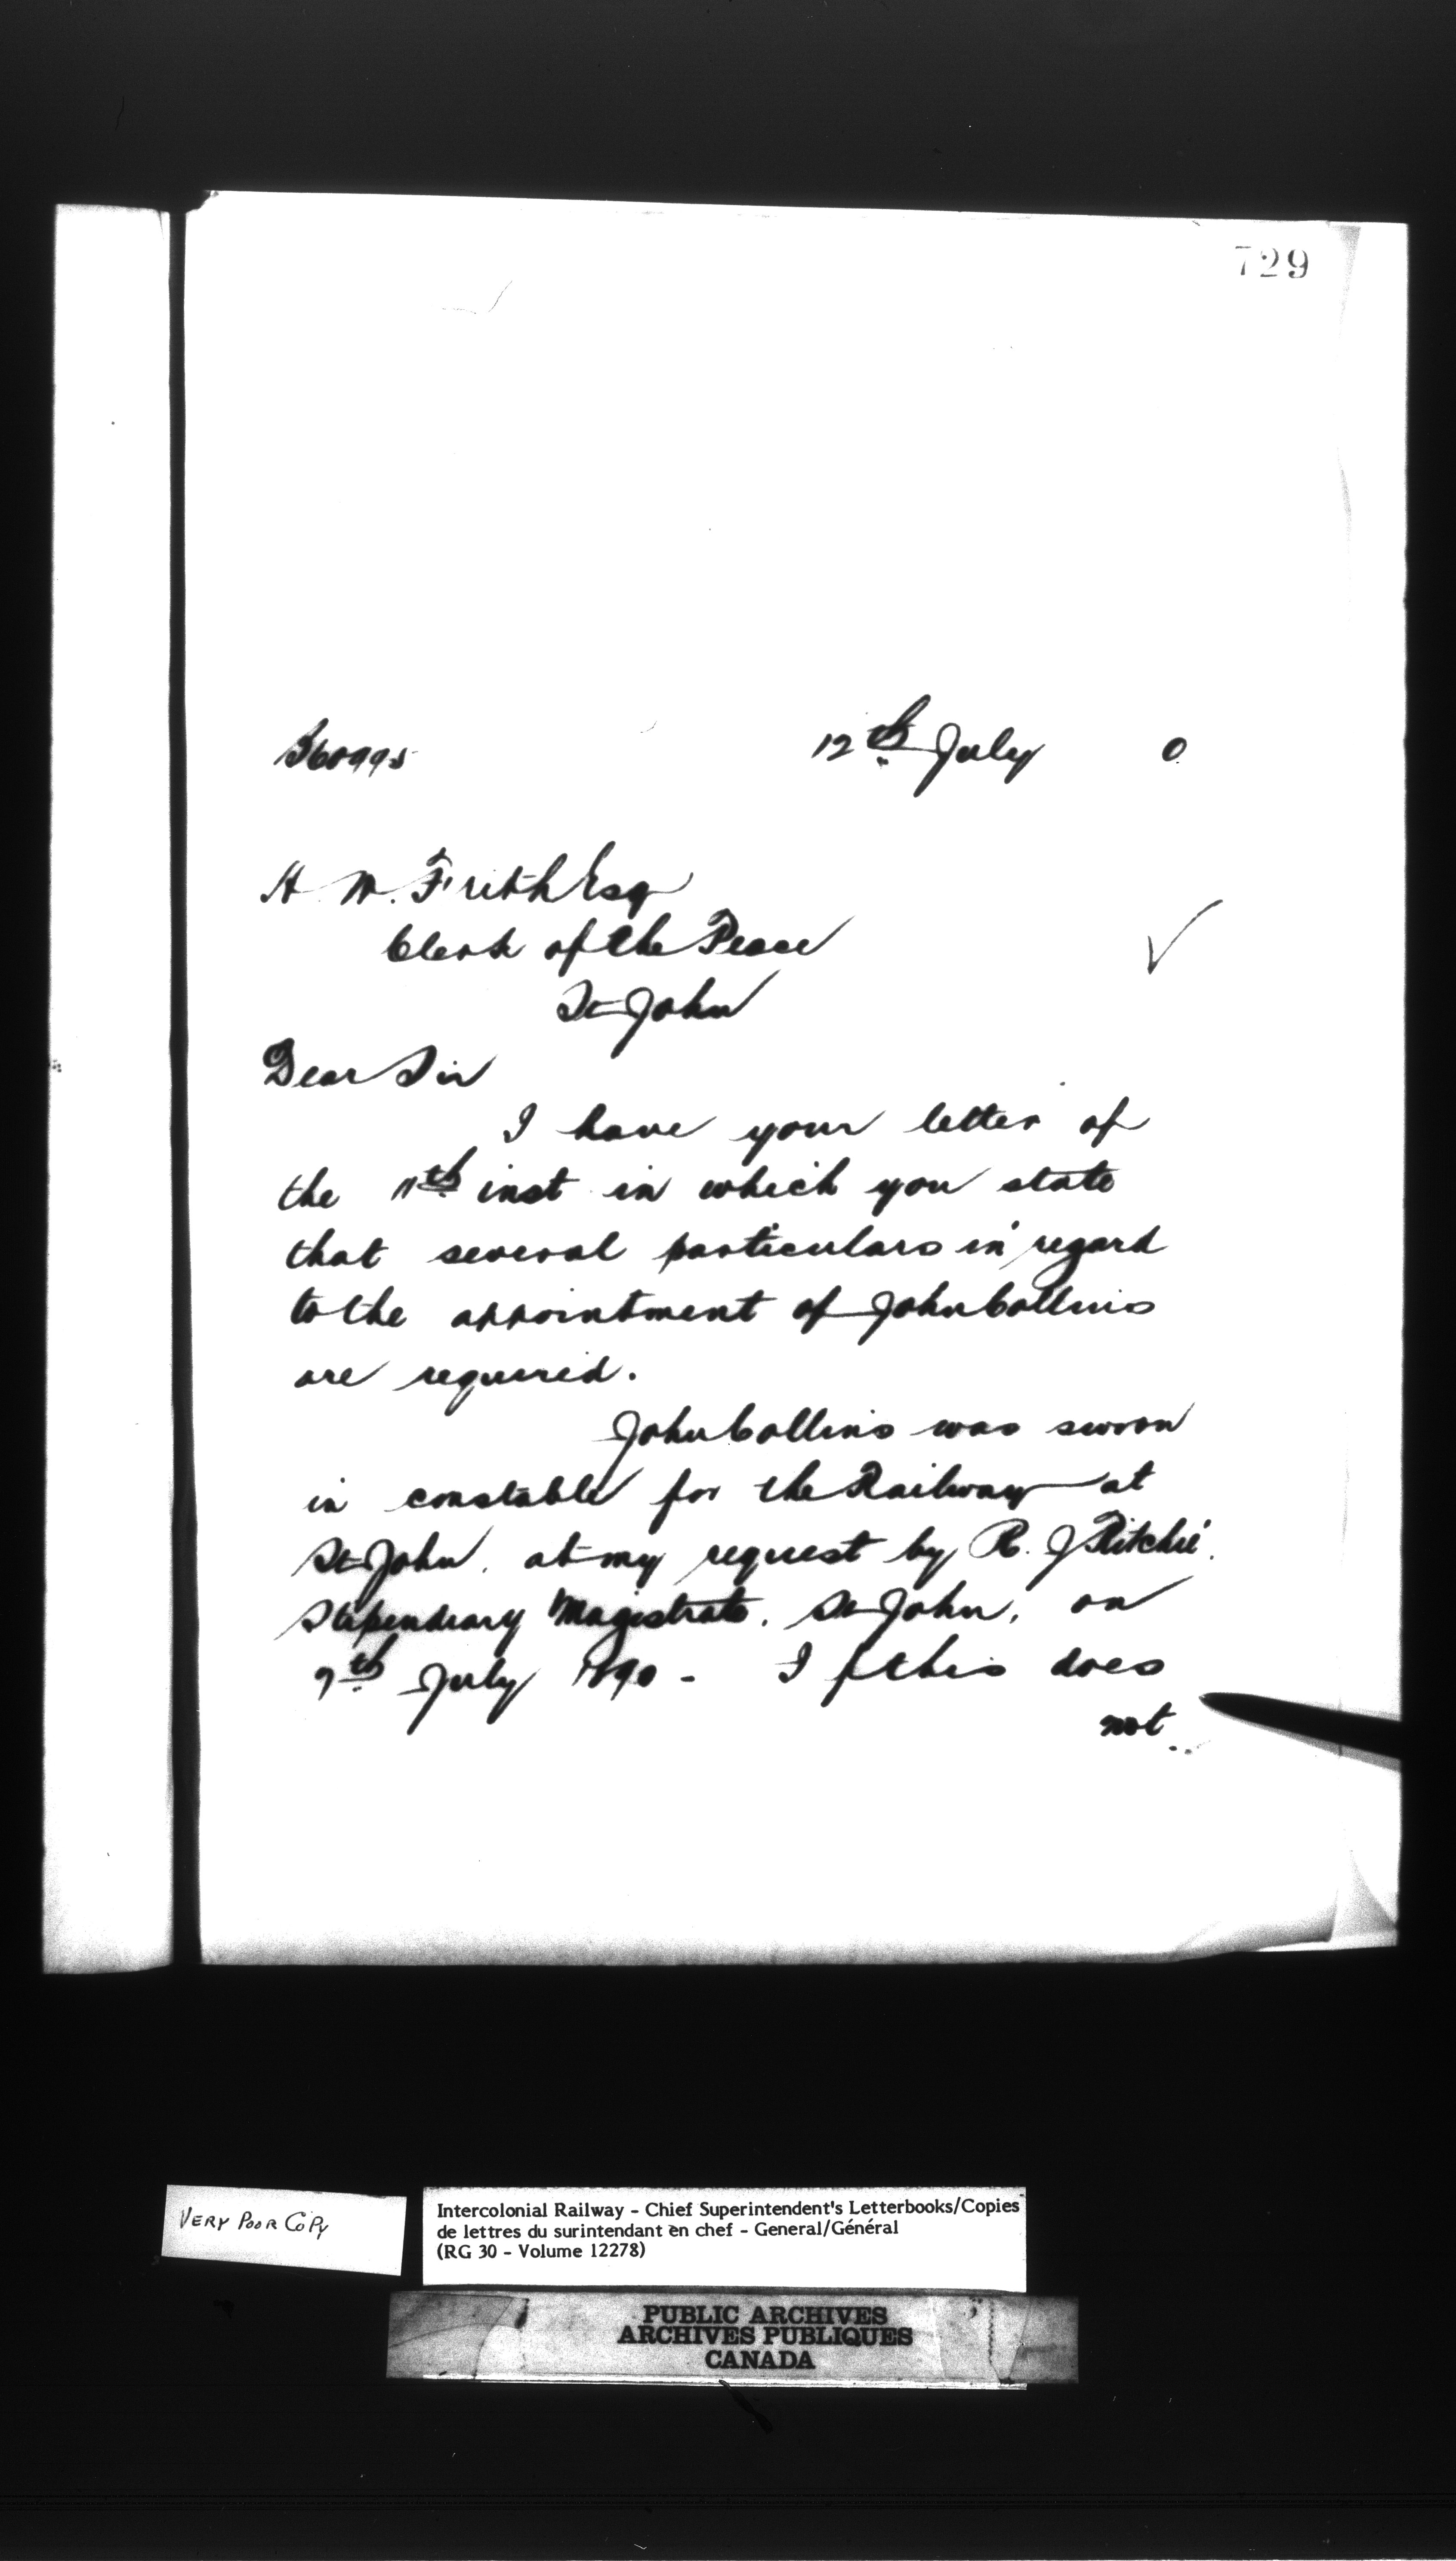 729
12th July 0
H. W. Frith Esq
Clerk of the Peace
St John
Dear Sir
I have your letter of
the 11th inst in which you state
that several particulars in regard
to the appointment of John Collins
are required.
John Collins was sworn
in constable for the Railway at
St John, at my request by R. J Ritchie
Stipendiary Magistrate, St John, on
9th July 1890 - If this does
not
VERY POOR COPY
Intercolonial Railway - Chief Superintendent's Letterbooks/Copies
de lettres du surintendant en chef - General/Général
(RG 30 - Volume 12278)
PUBLIC ARCHIVES
ARCHIVES PUBLIQUES
CANADA